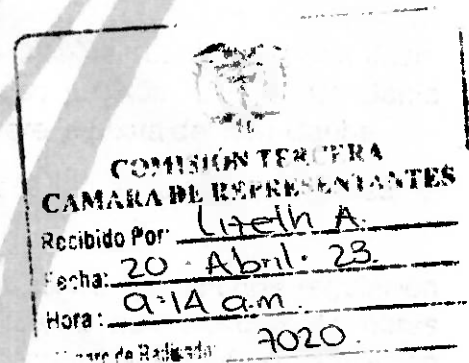 COMISIÓN TERCERA
CAMARA DE REPRESENTANTES
Recibido Por: Lizeth A.
Fecha: 20 - Abril - 23.
Hora: 9:14 a.m.
de Radicado: 7020.